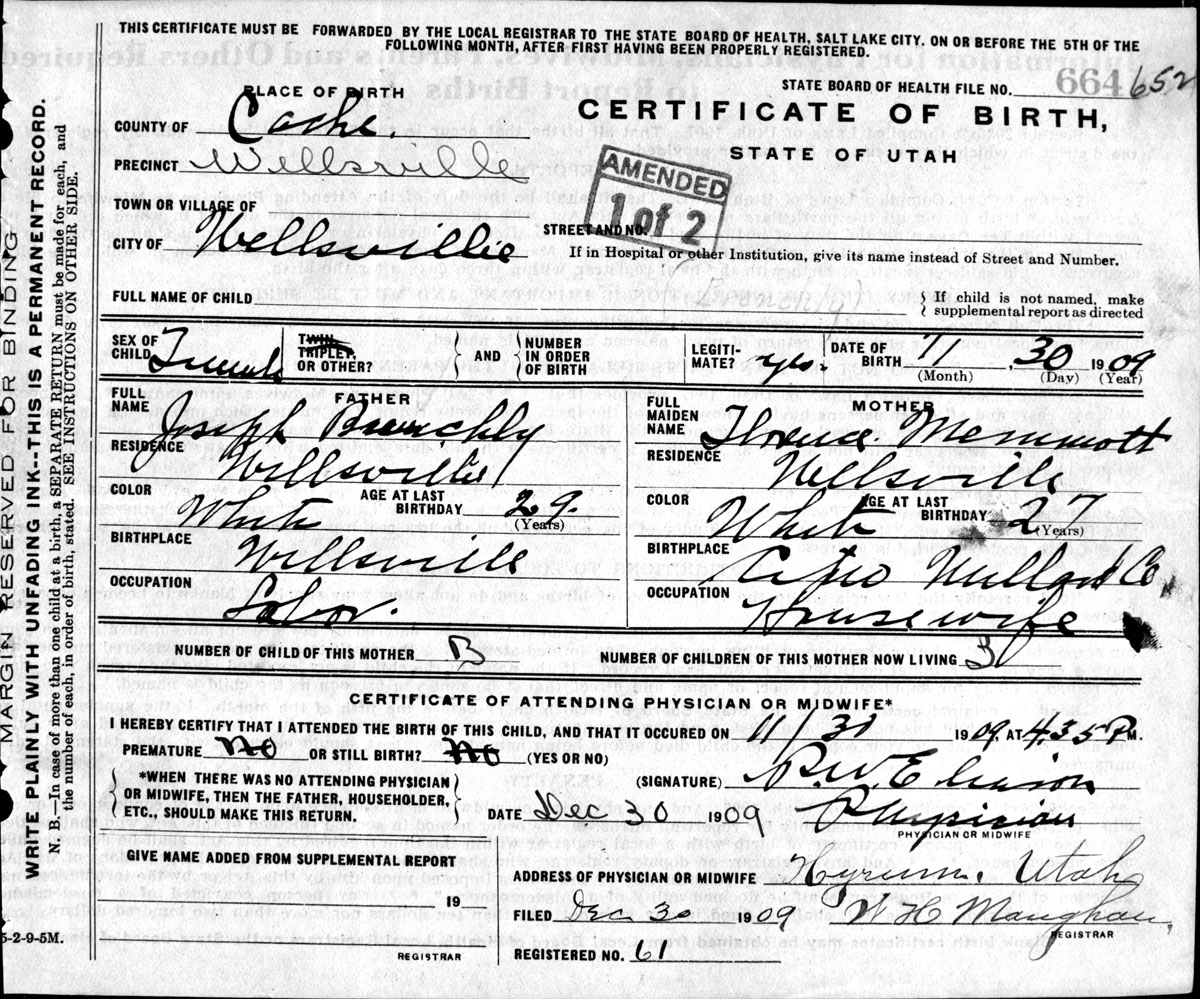 THIS CERTIFICATE MUST BE FORWARDED BY THE LOCAL REGISTRAR TO THE STATE BOARD OF HEALTH, SALT LAKE CITY, ON OR BEFORE THE 5TH OF THE
FOLLOWING MONTH, AFTER FIRST HAVING BEEN PROPERLY REGISTERED.
MARGIN RESERVED FOR BINDING
WRITE PLAINLY WITH UNFADING INK--THIS IS A PERMANENT RECORD.
N. B.—In case of more than one child at a birth, a SEPARATE RETURN must be made for each, and
the number of each, in order of birth, stated. SEE INSTRUCTIONS ON OTHER SIDE.
STATE BOARD OF HEALTH FILE NO. 664 652
PLACE OF BIRTH
CERTIFICATE OF BIRTH,
STATE OF UTAH
COUNTY OF Cache.
PRECINCT Wellsville
AMENDED
1 of 2
TOWN OR VILLAGE OF
CITY OF Wellsvillie
STREET AND NO.
If in Hospital or other Institution, give its name instead of Street and Number.
FULL NAME OF CHILD
If child is not named, make
supplemental report as directed
SEX OF CHILD Female
TWIN, TRIPLET, OR OTHER?
AND
NUMBER IN ORDER OF BIRTH
LEGITIMATE? yes
DATE OF BIRTH 11, 30 1909
(Month) (Day) (Year)
FATHER
FULL NAME Joseph
RESIDENCE Willsville
COLOR White
AGE AT LAST BIRTHDAY 29.
(Years)
BIRTHPLACE Willsville
OCCUPATION Labor.
MOTHER
FULL MAIDEN NAME Florence Memmott
RESIDENCE Wellsville
COLOR White
AGE AT LAST BIRTHDAY 27
(Years)
BIRTHPLACE Co
OCCUPATION Housewife
NUMBER OF CHILD OF THIS MOTHER 3
NUMBER OF CHILDREN OF THIS MOTHER NOW LIVING 3
CERTIFICATE OF ATTENDING PHYSICIAN OR MIDWIFE*
I HEREBY CERTIFY THAT I ATTENDED THE BIRTH OF THIS CHILD, AND THAT IT OCCURED ON 11/30 1909. AT 435 P M.
PREMATURE No OR STILL BIRTH? No (YES OR NO)
*WHEN THERE WAS NO ATTENDING PHYSICIAN
OR MIDWIFE, THEN THE FATHER, HOUSEHOLDER,
ETC., SHOULD MAKE THIS RETURN.
(SIGNATURE)
DATE Dec 30 1909
Physician
PHYSICIAN OR MIDWIFE
GIVE NAME ADDED FROM SUPPLEMENTAL REPORT
ADDRESS OF PHYSICIAN OR MIDWIFE Hyrum. Utah
19
FILED Dec 30 1909 W H Maughan,
REGISTRAR
REGISTRAR
REGISTERED NO. 61
5-2-9-5M.